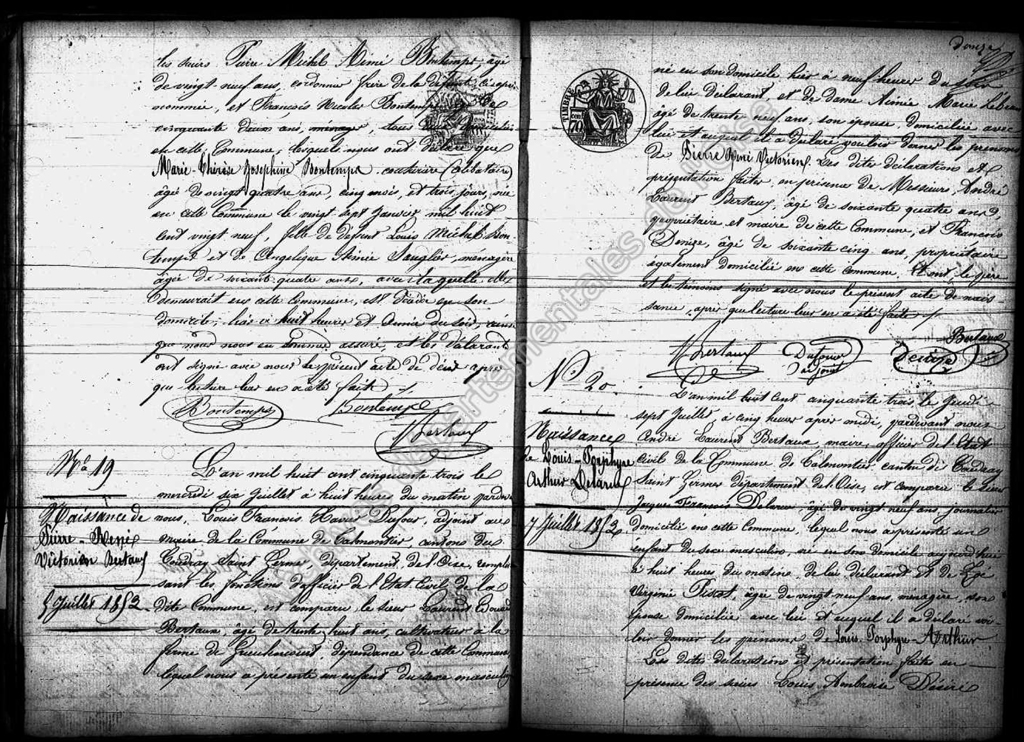 les sieurs Pierre Michel Aimé Bontemps, âgé
de vingt neuf ans, cordonnier frère de la défunte ci-après
nommée, et François Nicolas Bontemps, âgé de
cinquante deux ans, ménager, tous deux domiciliés
en cette Commune, lesquels nous ont déclaré que
Marie-Thérèse Joséphine Bontemps, couturière Célibataire
âgée de vingt quatre ans, cinq mois, et trois jours, née
en cette Commune le vingt sept janvier mil huit
cent vingt neuf, fille de défunt Louis Michel Bon
temps et de Angélique Aimée, ménagère
âgée de soixante quatre ans, avec laquelle elle
demeurait en cette Commune, est décédée en son
domicile, hier à huit heures et demie du soir, ainsi
que nous nous en sommes assuré, et les déclarants
ont signé avec nous le présent acte de décès après
que lecture leur en a été faite
Bontemps Bontemps
Bertaux
No 19
Naissance de
Pierre-René
Victorien Bertaux
5 Juillet 1853
L'an mil huit cent cinquante trois le
mercredi six Juillet à huit heures du matin pardevant
nous, Louis François Dufour, adjoint au
maire de la Commune de Talmontiers canton du
Coudray Saint Germer, département de l'Oise, remplis
sant les fonctions d'officier de l'Etat Civil de la
dite Commune, est comparu le sieur Laurent Edouard
Bertaux, âgé de trente huit ans, cultivateur à la
ferme de dépendance de cette Commune
lequel nous a présenté un enfant du sexe masculin
douze
né en son domicile, hier à neuf heures du
de lui déclarant et de Dame Aimée Marie
âgée de trente neuf ans, son épouse domiciliée avec
lui et auquel il a déclaré vouloir donner les prénoms
de Pierre René Victorien. Les dites déclarations et
présentation faites, en présence de Messieurs André
Laurent Bertaux, âgé de soixante quatre ans,
propriétaire et maire de cette Commune, et François
Denize, âgé de soixante cinq ans, propriétaire
également domicilié en cette commune. Et ont le père
et les témoins signé avec nous le présent acte de nais
sance, après que lecture leur en a été faite
Bertaux
Bertaux Dufour Denize
adjoint
No 20
Naissance
de Louis-Porphyre
Arthur Delarue
7 Juillet 1853
L'an mil huit cent cinquante trois, le jeudi
sept Juillet à cinq heures après midi, pardevant nous
André Laurent Bertaux, maire, officier de l'Etat
Civil de la Commune de Talmontiers canton du Coudray
Saint Germer département de l'Oise, est comparu le sieur
Jacques François Delarue, âgé de vingt neuf ans, journalier
domicilié en cette Commune, lequel nous a présenté un
enfant du sexe masculin, né en son domicile aujourd'hui
à huit heures du matin, de lui déclarant et de
Virginie, âgée de vingt neuf ans, ménagère, son
épouse domiciliée avec lui et auquel il a déclaré vou
loir donner les prénoms de Louis-Porphyre-Arthur
Les dites déclarations et présentation faites en
présence des sieurs Louis Ambroise Désiré